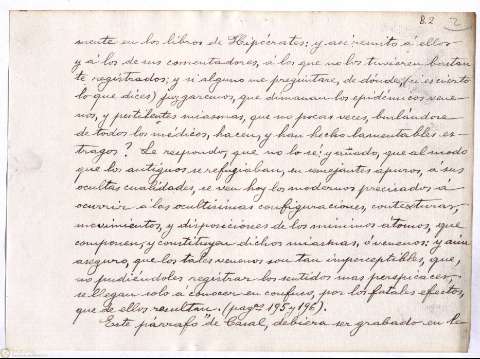 82 2
mente en los libros de Hipócrates: y así remito á ellos
y á los de sus comentadores, á los que no los tuvieren bastan
te registrados; y si alguno me preguntare, de dónde, (si es cierto
lo que dices) juzgaremos, que dimanan los epidémicos vene-
nos, y pestilentes miasmas, que no pocas veces, burlándose
de todos los médicos, hacen, y han hecho lamentables es-
tragos? Le respondo, que no lo se: y añado, que al modo
que los antiguos se refugiaban, en semejantes apuros, á sus
ocultas cualidades, se ven hoy los modernos precisados á
ocurrir á las ocultísimas configuraciones, contexturas,
movimientos, y disposiciones de los mínimos átomos, que
componen, y constituyen dichos miasmas, ó venenos: y aún
aseguro, que los tales venenos son tan imperceptibles, que,
no pudiéndoles registrar los sentidos mas perspicaces,
se llegan solo á conocer en confuso, por los fatales efectos,
que de ellos resultan. (pags 195 y 196).
Este párrafo de Casal, debiera ser grabado en le-